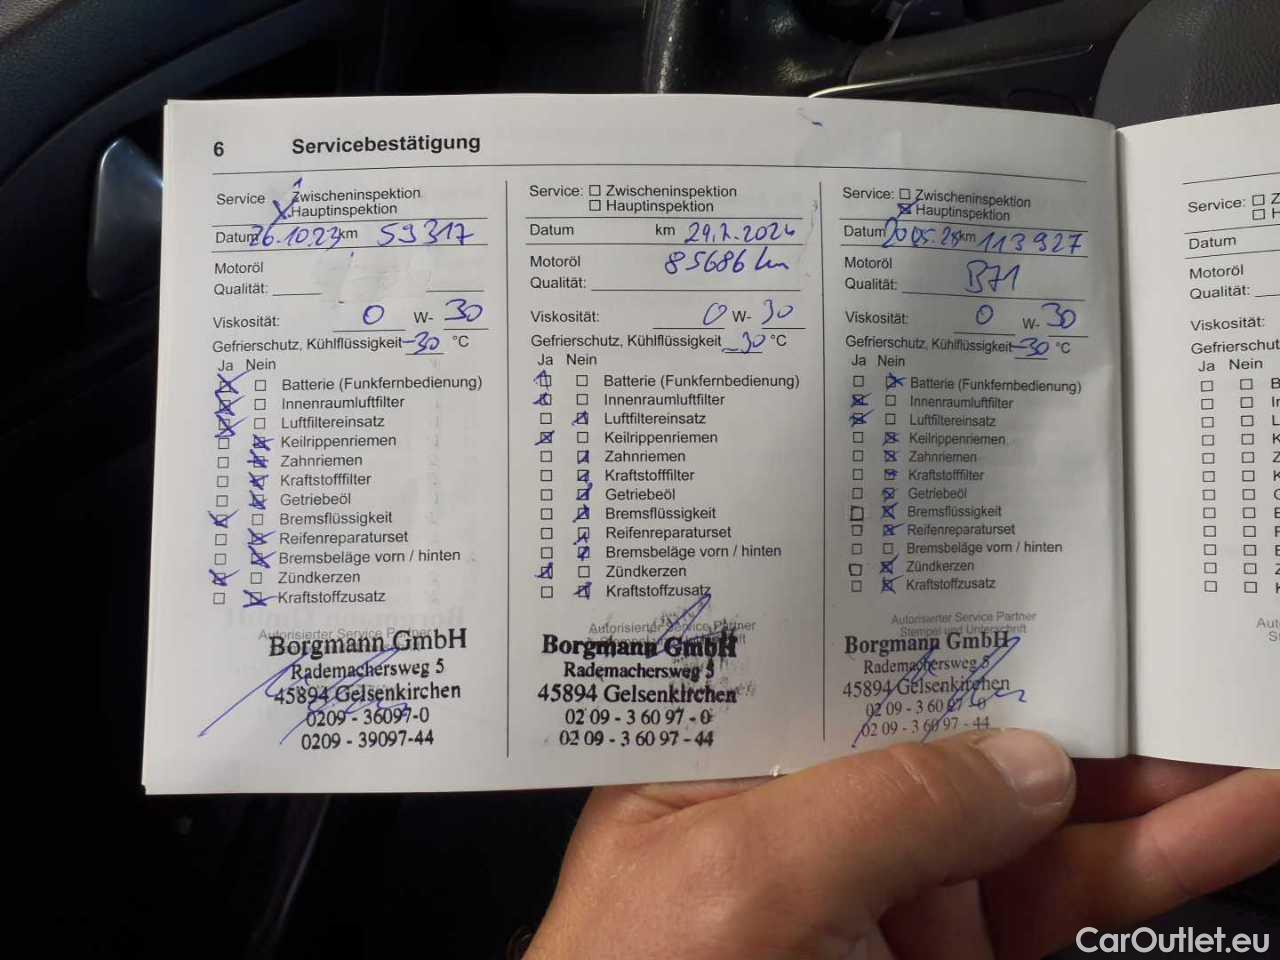 6 Servicebestätigung
Service Zwischeninspektion
Hauptinspektion
Datum 26.10.23 km 59317
Motoröl
Qualität:
Viskosität: 0 W- 30
Gefrierschutz, Kühlflüssigkeit -30 °C
Ja Nein
Batterie (Funkfernbedienung)
Innenraumluftfilter
Luftfiltereinsatz
Keilrippenriemen
Zahnriemen
Kraftstofffilter
Getriebeöl
Bremsflüssigkeit
Reifenreparaturset
Bremsbeläge vorn / hinten
Zündkerzen
Kraftstoffzusatz
Autorisierter Service Partner
Borgmann GmbH
Rademachersweg 5
45894 Gelsenkirchen
0209 - 36097-0
0209 - 39097-44
Service: Zwischeninspektion
Hauptinspektion
Datum km 29.7.2024
Motoröl 85686 km
Qualität:
Viskosität: 0 W- 30
Gefrierschutz, Kühlflüssigkeit -30 °C
Ja Nein
Batterie (Funkfernbedienung)
Innenraumluftfilter
Luftfiltereinsatz
Keilrippenriemen
Zahnriemen
Kraftstofffilter
Getriebeöl
Bremsflüssigkeit
Reifenreparaturset
Bremsbeläge vorn / hinten
Zündkerzen
Kraftstoffzusatz
Autorisierter Service Partner
Borgmann GmbH
Rademachersweg 5
45894 Gelsenkirchen
02 09 - 3 60 97 - 0
02 09 - 3 60 97 - 44
Service: Zwischeninspektion
Hauptinspektion
Datum km 113927
Motoröl
Qualität: B71
Viskosität: 0 W- 30
Gefrierschutz, Kühlflüssigkeit -30 °C
Ja Nein
Batterie (Funkfernbedienung)
Innenraumluftfilter
Luftfiltereinsatz
Keilrippenriemen
Zahnriemen
Kraftstofffilter
Getriebeöl
Bremsflüssigkeit
Reifenreparaturset
Bremsbeläge vorn / hinten
Zündkerzen
Kraftstoffzusatz
Autorisierter Service Partner
Stempel und Unterschrift
Borgmann GmbH
Rademachersweg 5
45894 Gelsenkirchen
02 09 - 3 60 97 - 0
02 09 - 3 60 97 - 44
Service: Z
H
Datum
Motoröl
Qualität:
Viskosität:
Gefrierschut
Ja Nein
B
In
L
K
Z
K
G
B
R
B
Z
K
Au
S
CarOutlet.eu